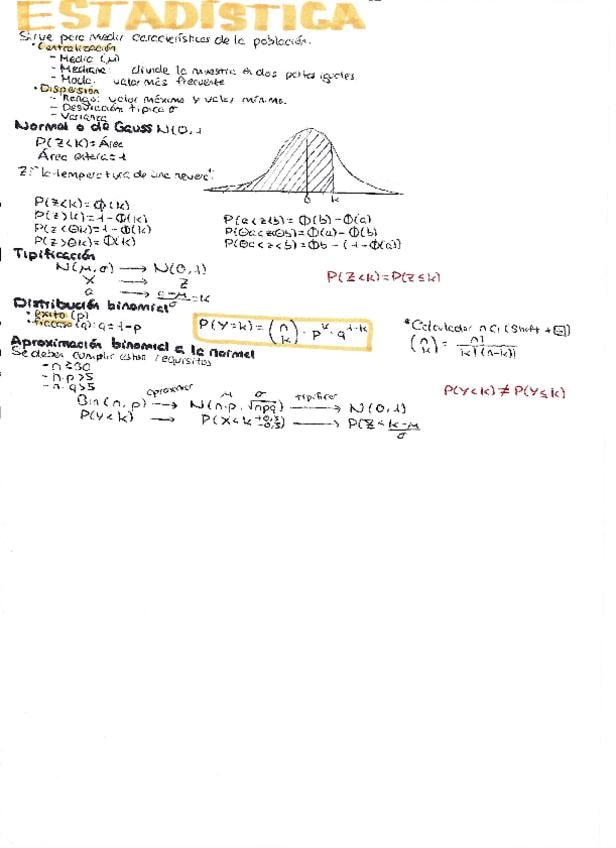 ESTADÍSTICA
Sirve para medir características de la población.
• Centralización
- Media (μ)
- Mediana: divide la muestra en dos partes iguales
- Moda: valor más frecuente
• Dispersión
- Rango: valor máximo y valor mínimo.
- Desviación típica σ
- Varianza
Normal o de Gauss N(0,1
P(Z<k)=Área
Área entera=1
Z:"la temperatura de una nevera"
0 k
P(Z<k)=Φ(k)
P(Z>k)=1-Φ(k)
P(Z<⊖k)=1-Φ(k)
P(Z>⊖k)=Φ(k)
P(a<z<b)=Φ(b)-Φ(a)
P(⊖a<z<⊖b)=Φ(a)-Φ(b)
P(⊖a<z<b)=Φb-(1-Φ(a))
Tipificación
N(μ,σ) → N(0,1)
X → Z
a → a-μ/σ=k
P(Z<k)=P(Z≤k)
Distribución binomial
• éxito (p)
• fracaso (q): q=1-p
P(Y=k)=(n k)·p^k·q^1-k
*Calculadora nCr (Shift + ÷)
(n k)=n!/k!(n-k)!
Aproximación binomial a la normal
Se deben cumplir estos requisitos
- n≥30
- n·p>5
- n·q>5
aproximar μ σ tipificar
Bin(n,p) → N(n·p, √npq) → N(0,1)
P(Y<k) → P(X<k +0,5 -0,5) → P(Z<k-μ/σ
P(Y<k)≠P(Y≤k)